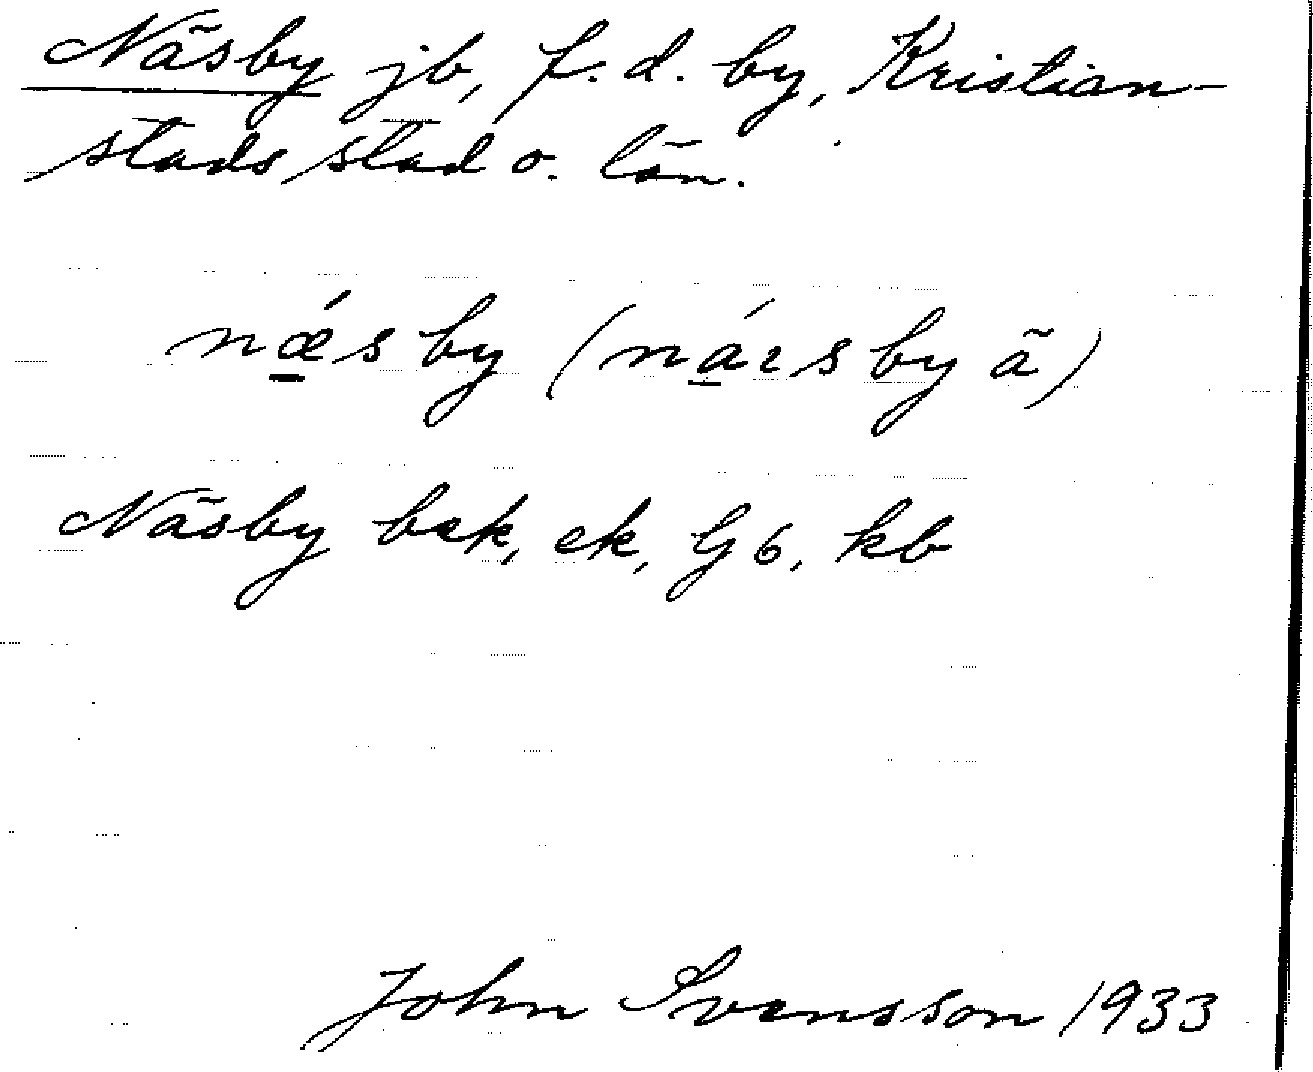 Näsby jb, f.d. by, Kristian-
stads stad o. län.
nǽ̲sby (ná̲ɪsby ã)
Näsby bek, ek, G6, kb
John Svensson 1933